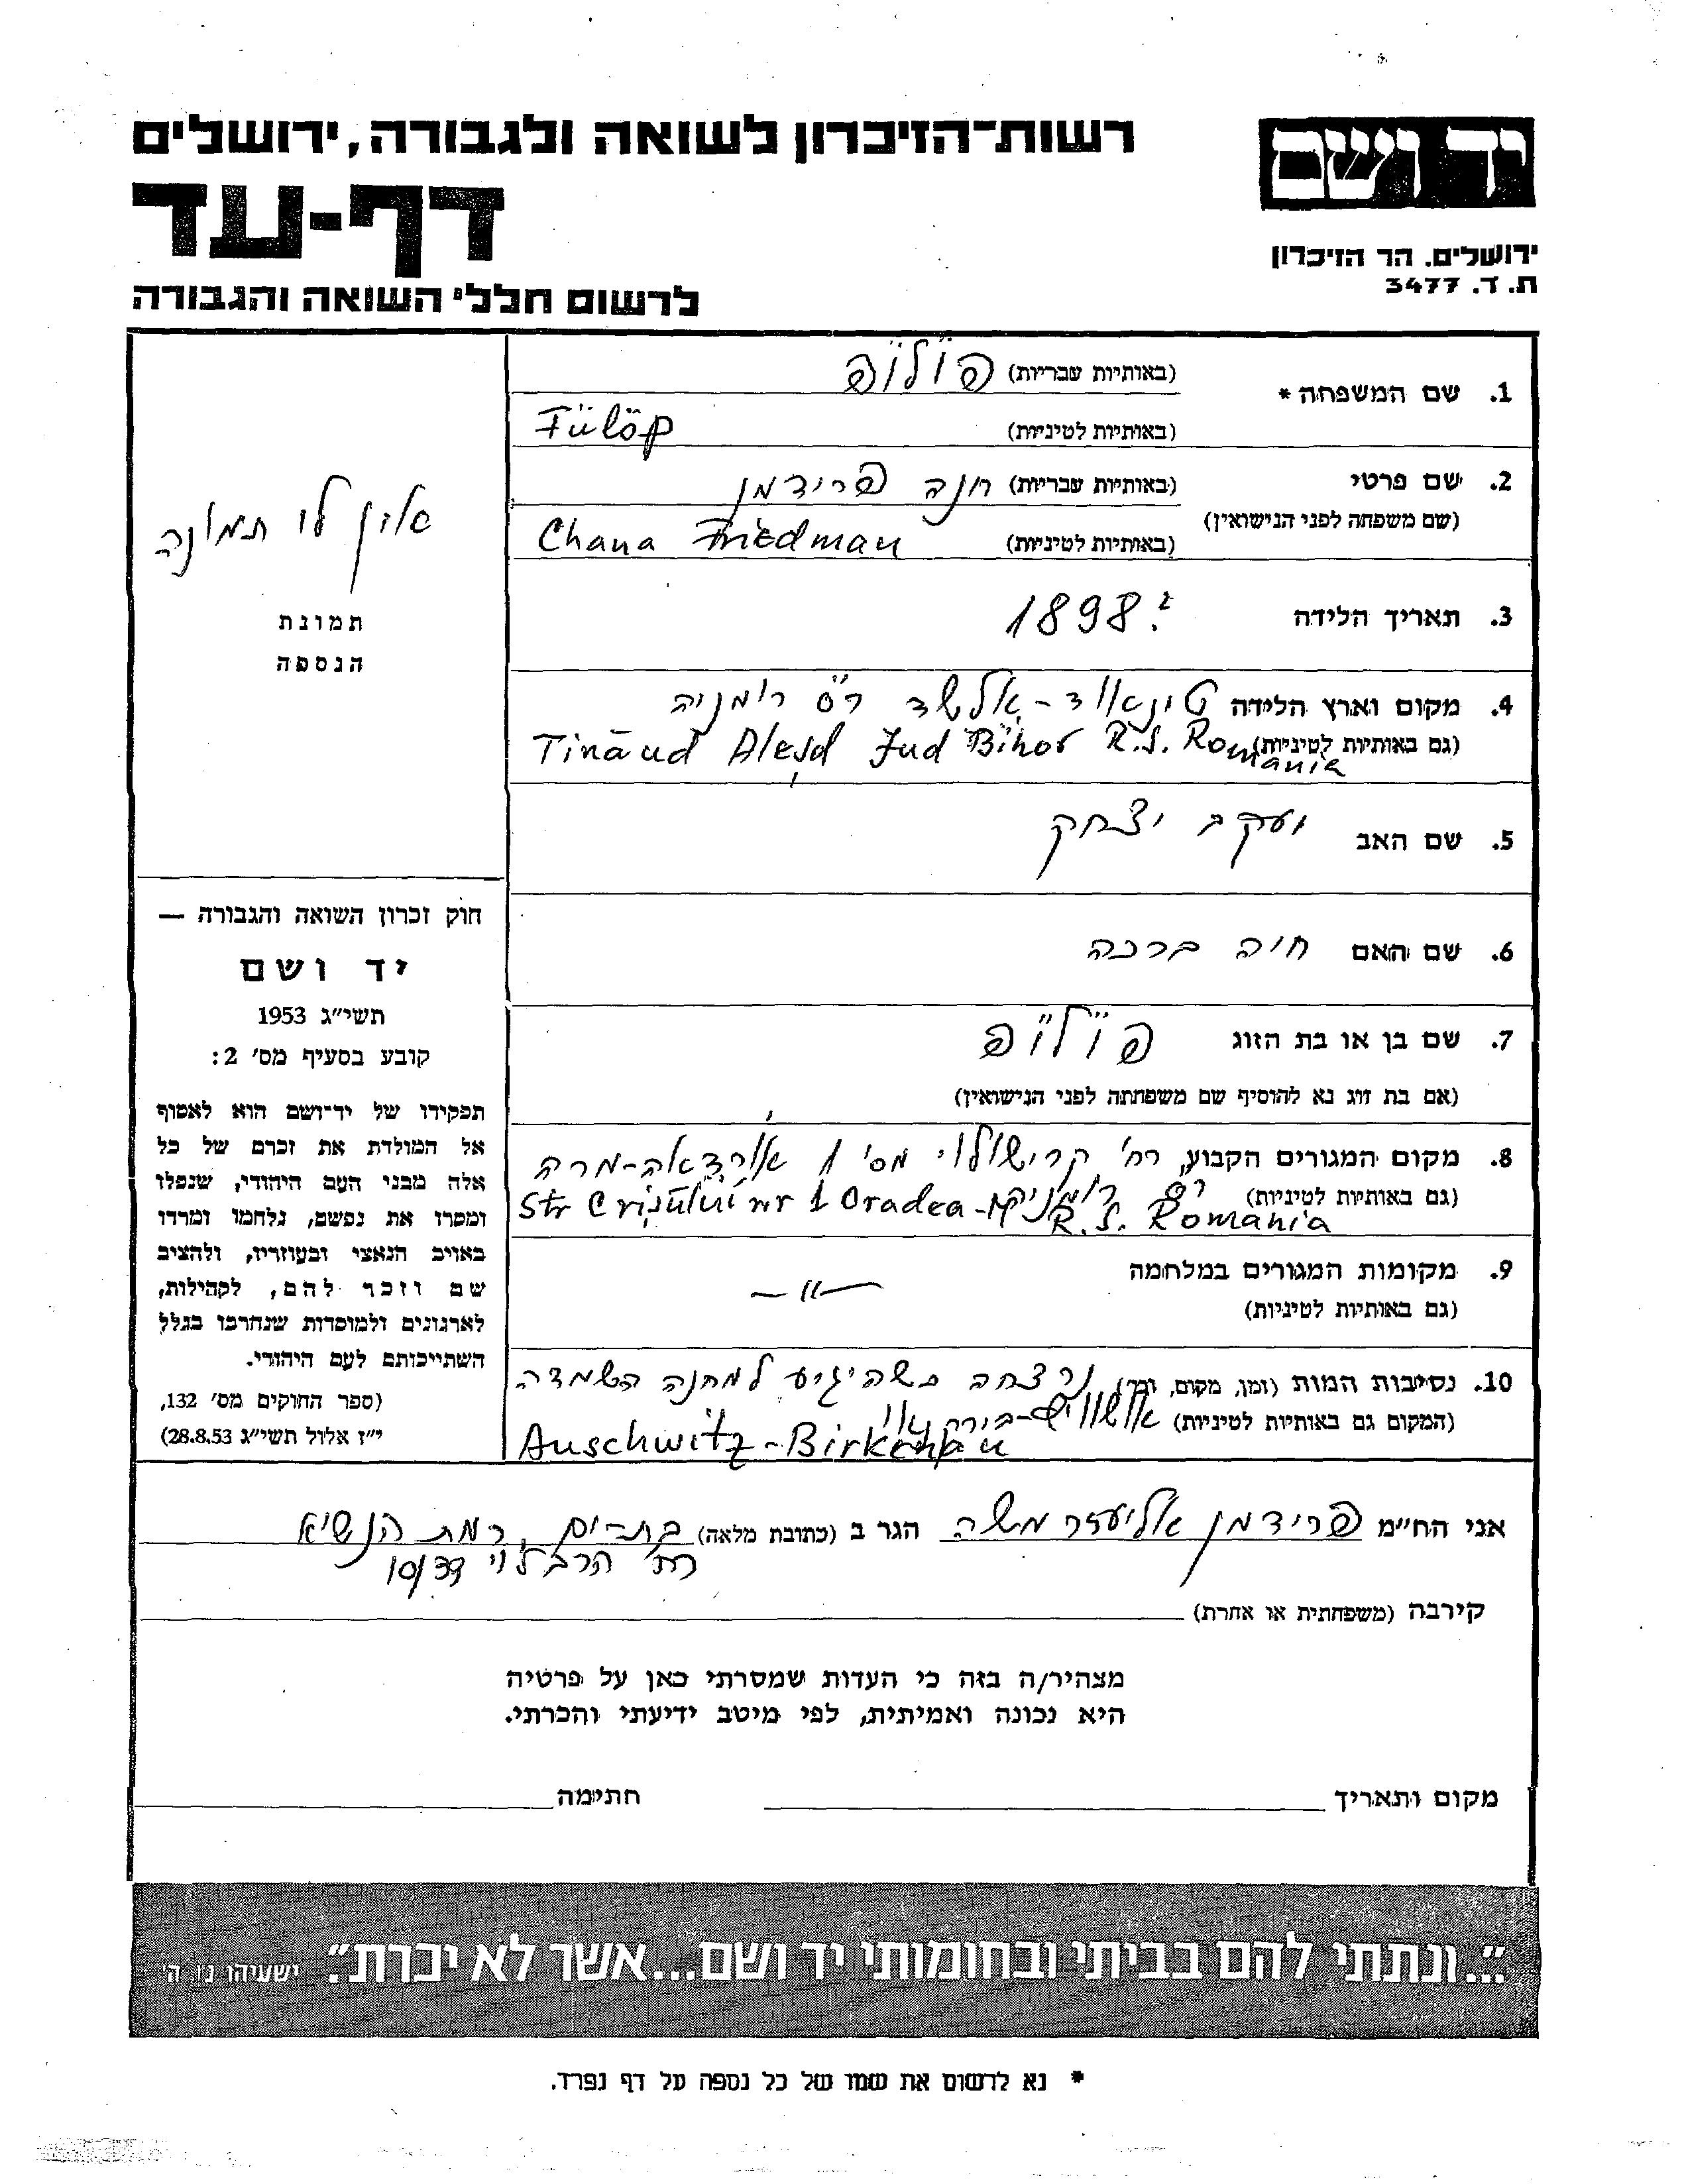 רשות־הזיכרון לשואה ולגבורה, ירושלים
יד ושם
דף-עד
ירושלים. הר הזיכרון
ת. ד. 3477
לרשום חללי השואה והגבורה
1. שם המשפחה * (באותיות עבריות) פילופ
(באותיות לטיניות) Fülöp
2. שם פרטי (באותיות עבריות) חנה פרידמן
(שם משפחה לפני הנישואין)
(באותיות לטיניות) Chana Friedman
אין לי תמונה
תמונת
הנספה
3. תאריך הלידה 1898 ?
4. מקום וארץ הלידה טינאווד-אלשד רס רומניה
(גם באותיות לטיניות) Tināud Aleşd Jud Bihor R.S. Romania
5. שם האב יעקב יצחק
6. שם האם חיה ברכה
7. שם בן או בת הזוג פילופ
(אם בת זוג נא להוסיף שם משפחתה לפני הנישואין)
8. מקום המגורים הקבוע, רח' קרישולוי מס' 1 אורדאה-מרה
(גם באותיות לטיניות) רס רומניה
Str Crişului nr 1 Oradea-M R.S. Romania
9. מקומות המגורים במלחמה
(גם באותיות לטיניות) — 〃 —
10. נסיבות המות (זמן, מקום, וכד') נרצחה כשהיגיע למחנה השמדה
(המקום גם באותיות לטיניות) אושוויץ-בירקנאו
Auschwitz-Birkenau
חוק זכרון השואה והגבורה —
יד ושם
תשי״ג 1953
קובע בסעיף מס' 2:
תפקידו של יד־ושם הוא לאסוף
אל המולדת את זכרם של כל
אלה מבני העם היהודי, שנפלו
ומסרו את נפשם, נלחמו ומרדו
באויב הנאצי ובעוזריו, ולהציב
שם וזכר להם, לקהילות,
לארגונים ולמוסדות שנחרבו בגלל
השתייכותם לעם היהודי.
(ספר החוקים מס' 132,
י״ז אלול תשי״ג 28.8.53)
אני הח״מ פרידמן אליעזר משה הגר ב (כתובת מלאה) בת-ים, רמת הנשיא
רח' הרב לוי 10/33
קירבה (משפחתית או אחרת)
מצהיר/ה בזה כי העדות שמסרתי כאן על פרטיה
היא נכונה ואמיתית, לפי מיטב ידיעתי והכרתי.
מקום ותאריך חתימה
״...ונתתי להם בביתי ובחומותי יד ושם...אשר לא יכרת״. ישעיהו נ״ו, ה'
* נא לרשום את שמו של כל נספה על דף נפרד.